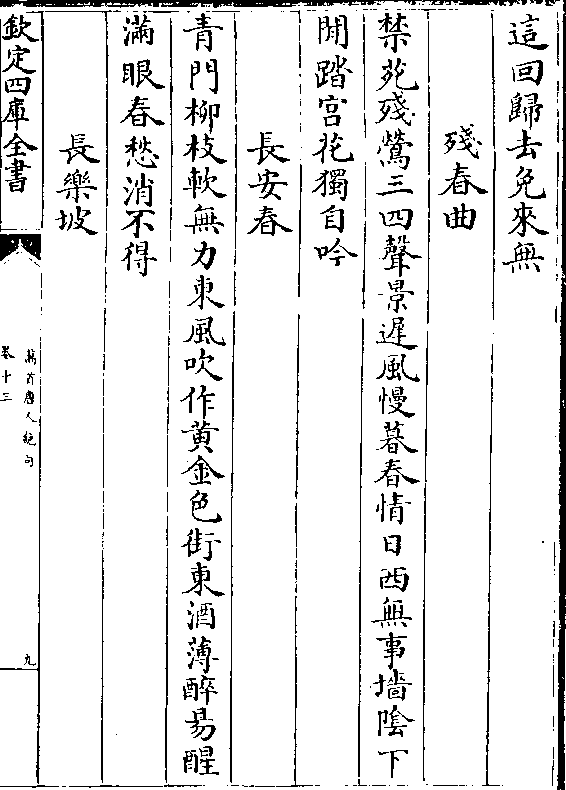 這回歸去免來無
殘春曲
禁苑殘鶯三四聲景遲風慢暮春情日西無事墻隂下
閒踏宫花獨自吟
長安春
青門柳枝軟無力東風吹作黄金色街東酒薄醉易醒
滿眼春愁消不得
長樂坡
欽定四庫全書
萬首唐人絶句
卷十三
九